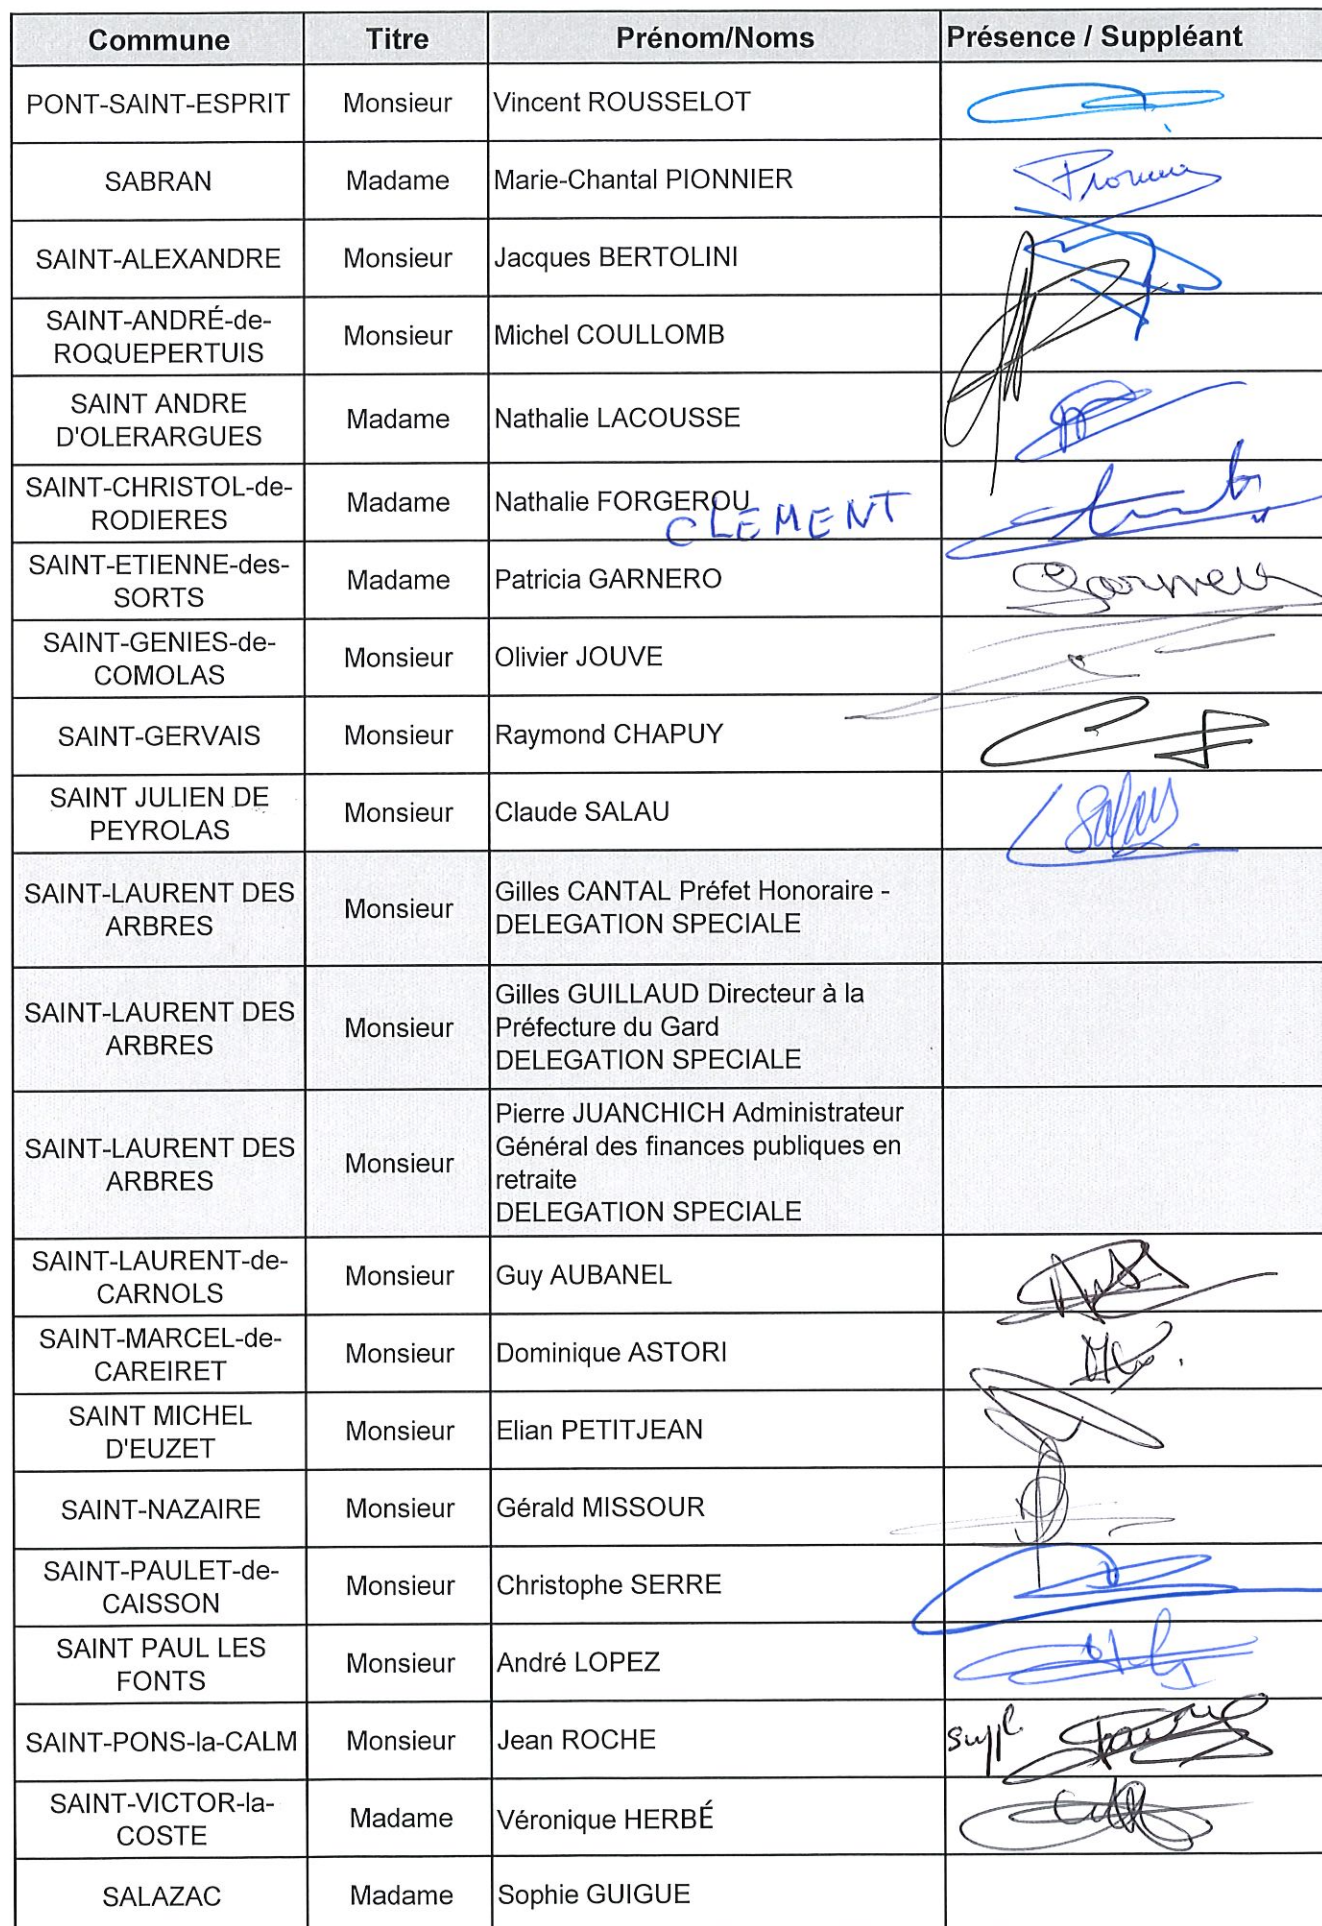 Commune Titre Prénom/Noms Présence / Suppléant
PONT-SAINT-ESPRIT Monsieur Vincent ROUSSELOT
SABRAN Madame Marie-Chantal PIONNIER
SAINT-ALEXANDRE Monsieur Jacques BERTOLINI
SAINT-ANDRÉ-de-
ROQUEPERTUIS Monsieur Michel COULLOMB
SAINT ANDRE
D'OLERARGUES Madame Nathalie LACOUSSE
SAINT-CHRISTOL-de-
RODIERES Madame Nathalie FORGEROU
CLEMENT
SAINT-ETIENNE-des-
SORTS Madame Patricia GARNERO
SAINT-GENIES-de-
COMOLAS Monsieur Olivier JOUVE
SAINT-GERVAIS Monsieur Raymond CHAPUY
SAINT JULIEN DE
PEYROLAS Monsieur Claude SALAU
Salau
SAINT-LAURENT DES
ARBRES Monsieur Gilles CANTAL Préfet Honoraire -
DELEGATION SPECIALE
SAINT-LAURENT DES
ARBRES Monsieur Gilles GUILLAUD Directeur à la
Préfecture du Gard
DELEGATION SPECIALE
SAINT-LAURENT DES
ARBRES Monsieur Pierre JUANCHICH Administrateur
Général des finances publiques en
retraite
DELEGATION SPECIALE
SAINT-LAURENT-de-
CARNOLS Monsieur Guy AUBANEL
SAINT-MARCEL-de-
CAREIRET Monsieur Dominique ASTORI
SAINT MICHEL
D'EUZET Monsieur Elian PETITJEAN
SAINT-NAZAIRE Monsieur Gérald MISSOUR
SAINT-PAULET-de-
CAISSON Monsieur Christophe SERRE
SAINT PAUL LES
FONTS Monsieur André LOPEZ
SAINT-PONS-la-CALM Monsieur Jean ROCHE Suppl.
SAINT-VICTOR-la-
COSTE Madame Véronique HERBÉ
SALAZAC Madame Sophie GUIGUE